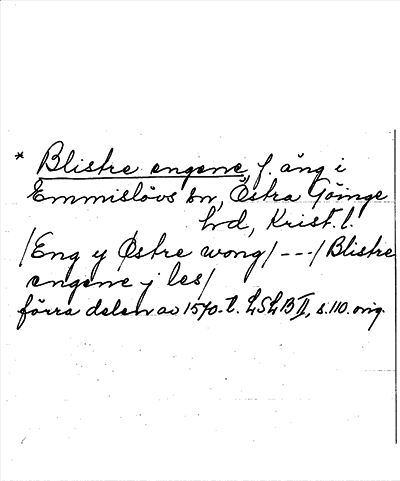 * Blistre engene, f. äng i
Emmislövs sn, Östra Göinge
hd, Krist. l.
/Eng y Østre wong/ --- /Blistre
engene j les/
förra delen av 1570-t. LSLB II, s. 110. orig.